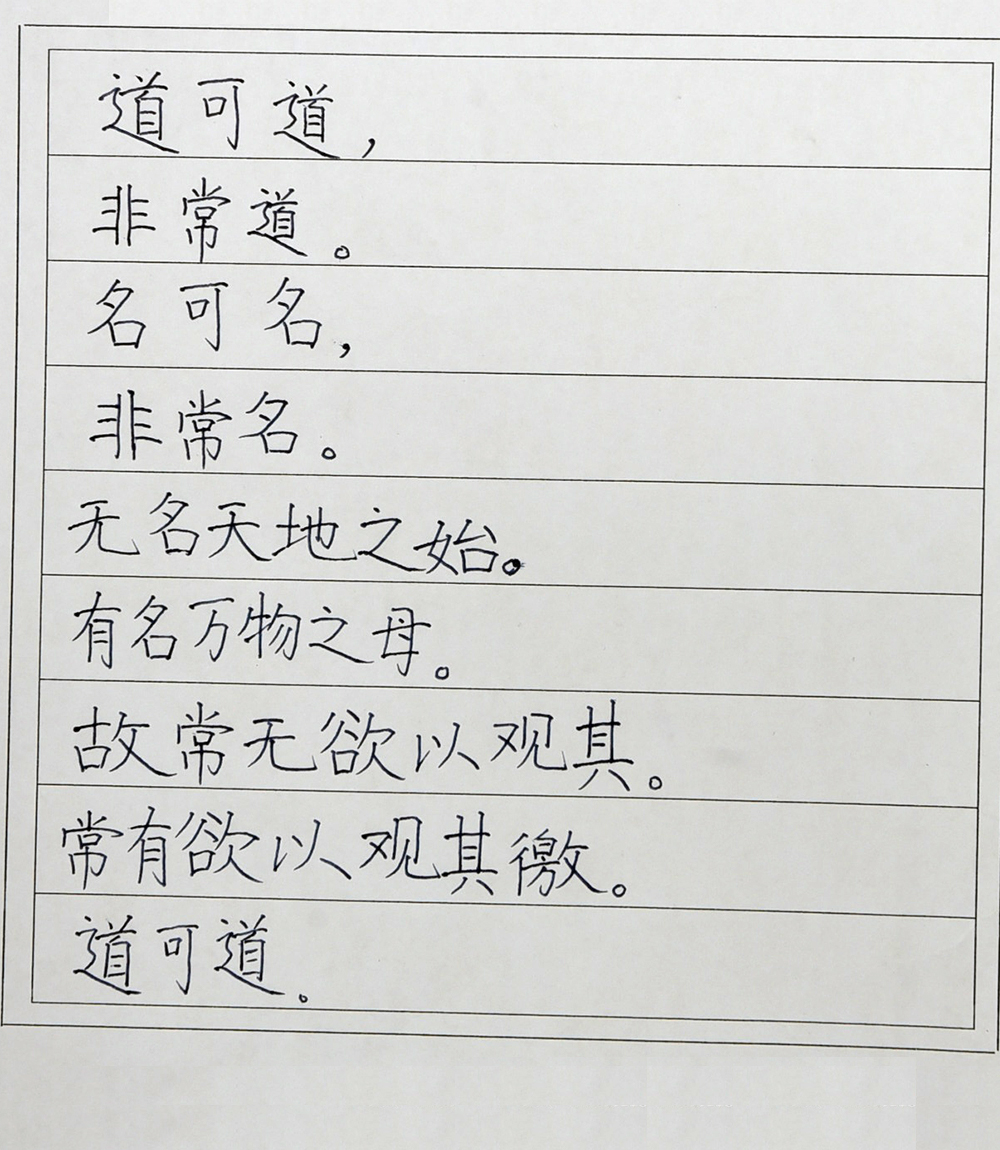 道可道，
非常道。
名可名，
非常名。
无名天地之始。
有名万物之母。
故常无欲以观其。
常有欲以观其徼。
道可道。